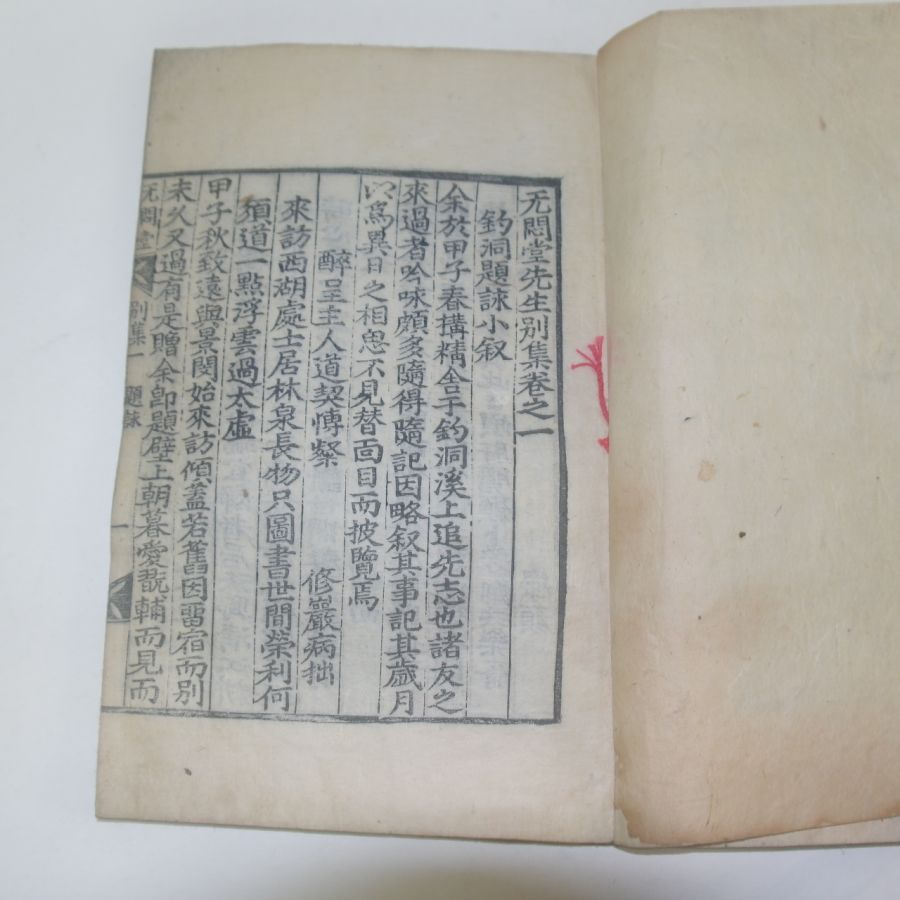 无悶堂先生別集卷之一
釣洞題詠小叙
余於甲子春搆精舍于釣洞溪上追先志也諸友之
來過者吟咏頗多隨得隨記因略叙其事記其歲月
以爲異日之相思不見替面目而披覽焉
醉呈主人道契愽粲 修巖病拙
來訪西湖處士居林泉長物只圖書世間榮利何
須道一點浮雲過太虛
甲子秋致遠與景閔始來訪傾蓋若舊因留宿而別
未久又過有是贈余卽題壁上朝暮愛翫輔而見而
无悶堂 別集一 題詠 一